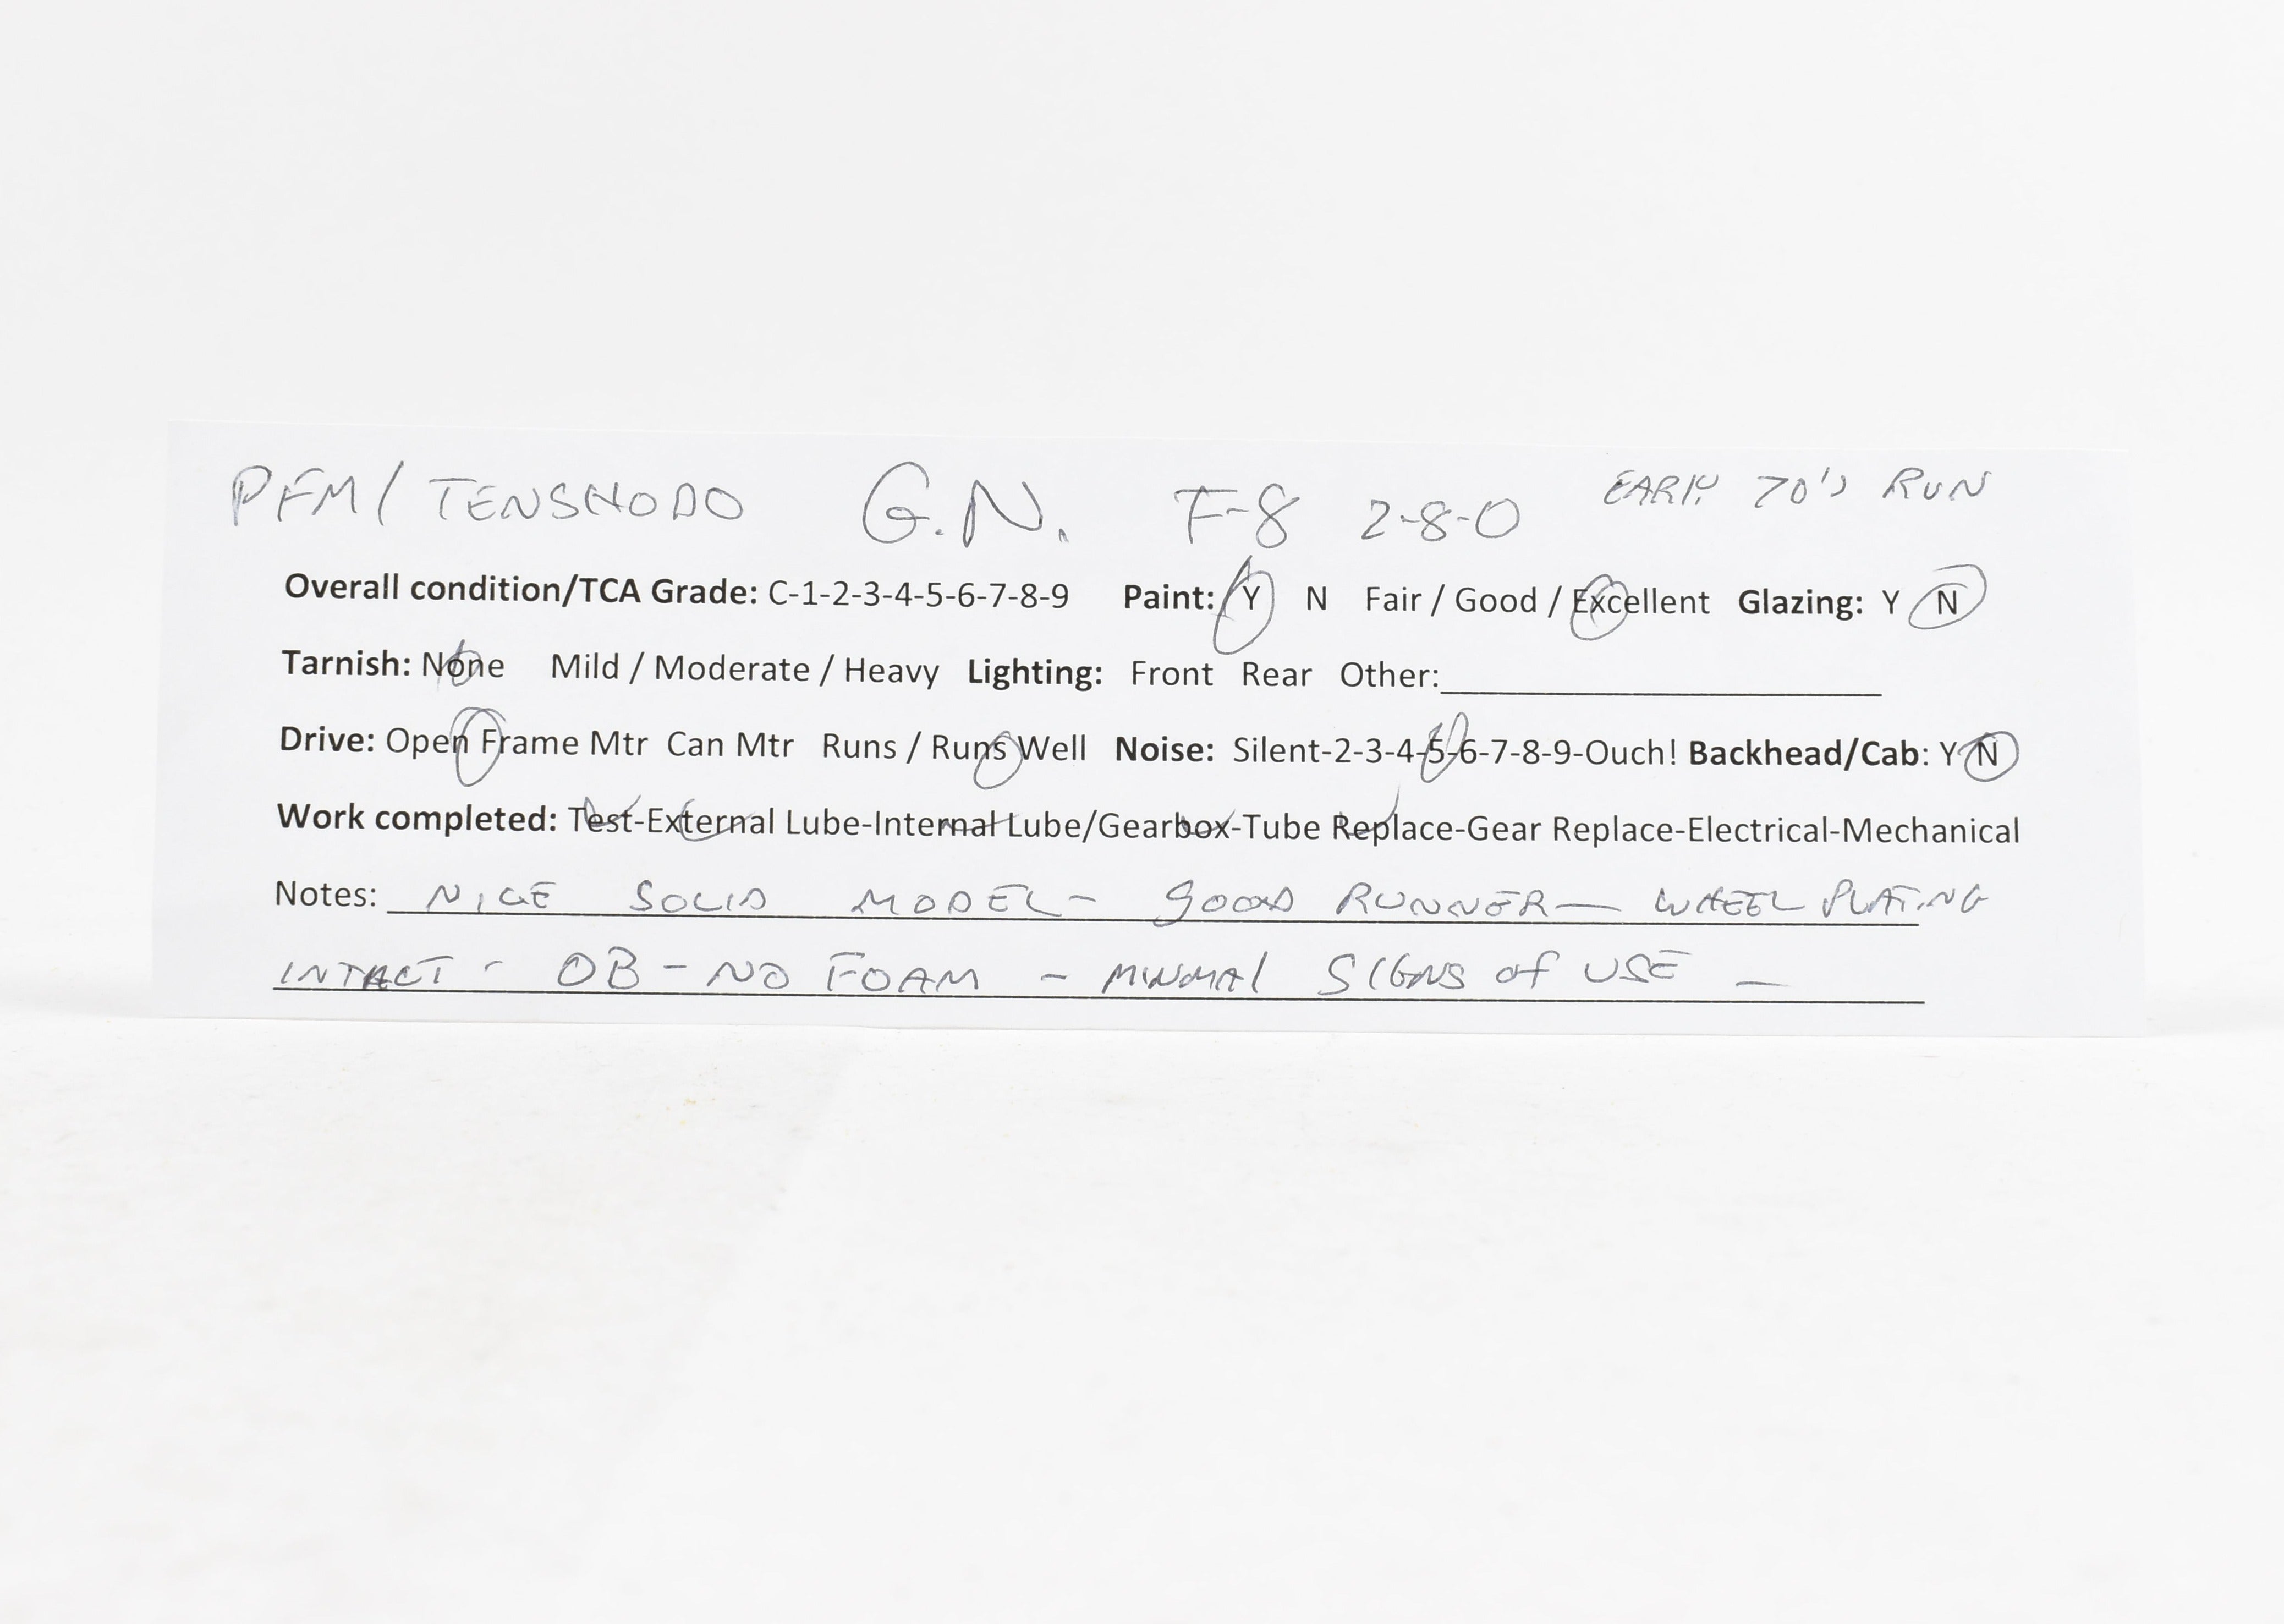 PFM/TENSHODO G.N. F-8 2-8-0 EARLY 70'S RUN
Overall condition/TCA Grade: C-1-2-3-4-5-6-7-8-9 Paint: Y N Fair / Good / Excellent Glazing: Y N
Tarnish: None Mild / Moderate / Heavy Lighting: Front Rear Other:
Drive: Open Frame Mtr Can Mtr Runs / Runs Well Noise: Silent-2-3-4-5-6-7-8-9-Ouch! Backhead/Cab: Y N
Work completed: Test-External Lube-Internal Lube/Gearbox-Tube Replace-Gear Replace-Electrical-Mechanical
Notes: NICE SOLID MODEL - GOOD RUNNER - WHEEL PLATING
INTACT - OB - NO FOAM - MINIMAL SIGNS OF USE -